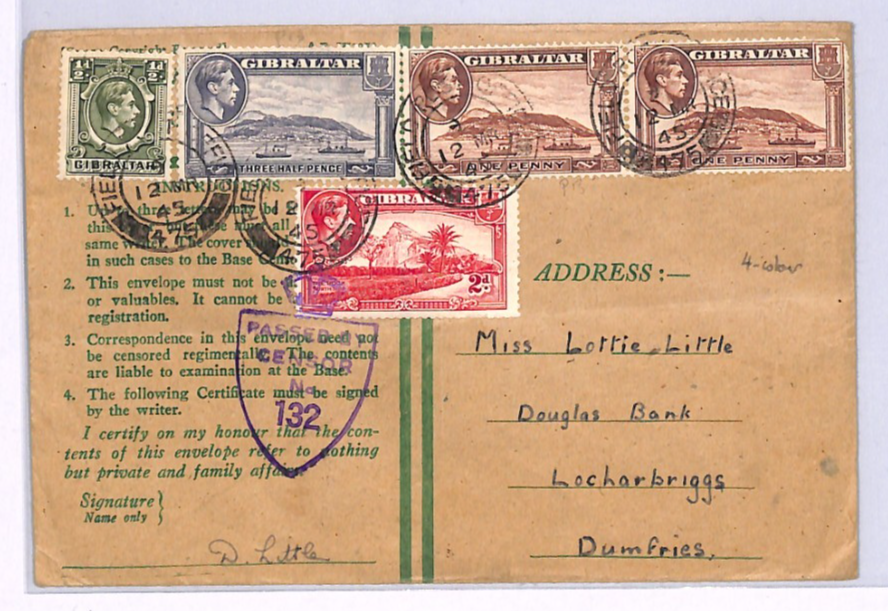 ½d ½d
GIBRALTAR
GIBRALTAR
THREE HALF PENCE
GIBRALTAR
ONE PENNY
GIBRALTAR
ONE PENNY
12 MR
45
475
12 MR
45
475
12 MR
45
475
12 MR
45
475
GIBRALTAR
2d
INSTRUCTIONS.
1. Up to three letters may be
this but these must all
same writer. The cover should
in such cases to the Base
2. This envelope must not be
or valuables. It cannot be
registration.
3. Correspondence in this envelope need not
be censored regimentally. The contents
are liable to examination at the Base.
4. The following Certificate must be signed
by the writer.
I certify on my honour that the con-
tents of this envelope refer to nothing
but private and family affairs.
Signature
Name only
D. Little
PASSED BY
CENSOR
No
132
4-colour
ADDRESS :—
Miss Lottie Little
Douglas Bank
Locharbriggs
Dumfries.